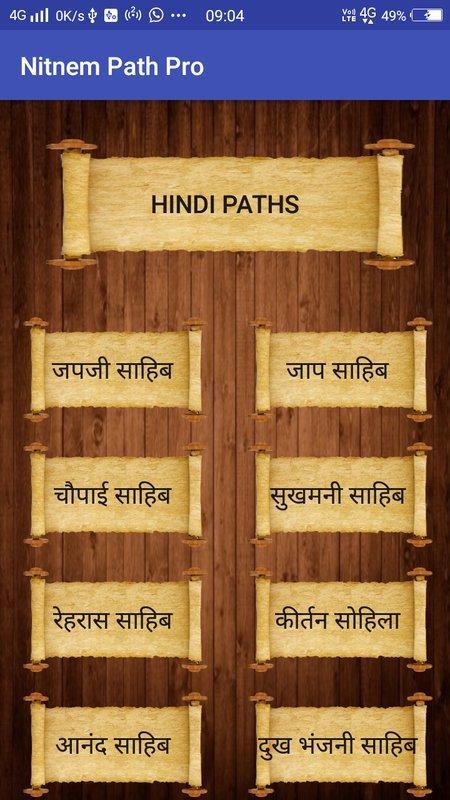 4G 0K/s 09:04 VoI) LTE 4G 49%
Nitnem Path Pro
HINDI PATHS
जपजी साहिब जाप साहिब
चौपाई साहिब सुखमनी साहिब
रेहरास साहिब कीर्तन सोहिला
आनंद साहिब दुख भंजनी साहिब